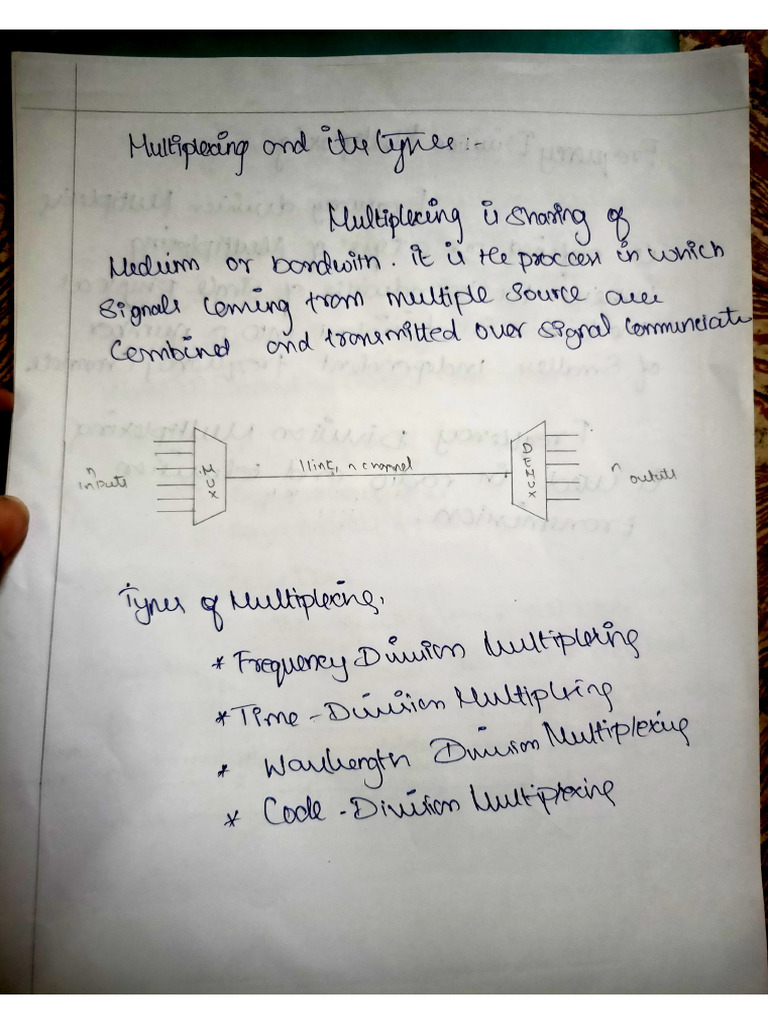 Multiplexing and its types:-
Multiplexing is sharing of
Medium or bandwith. it is the proccess in which
signals coming from multiple source are
Combined and transmitted over signal
MUX
1 line, n channel
DEMUX
n
inputs
n
outputs
Types of Multiplexing.
* Frequency Division Multiplexing
* Time - Division Multiplexing
* Wavelength Division Multiplexing
* Code - Division Multiplexing